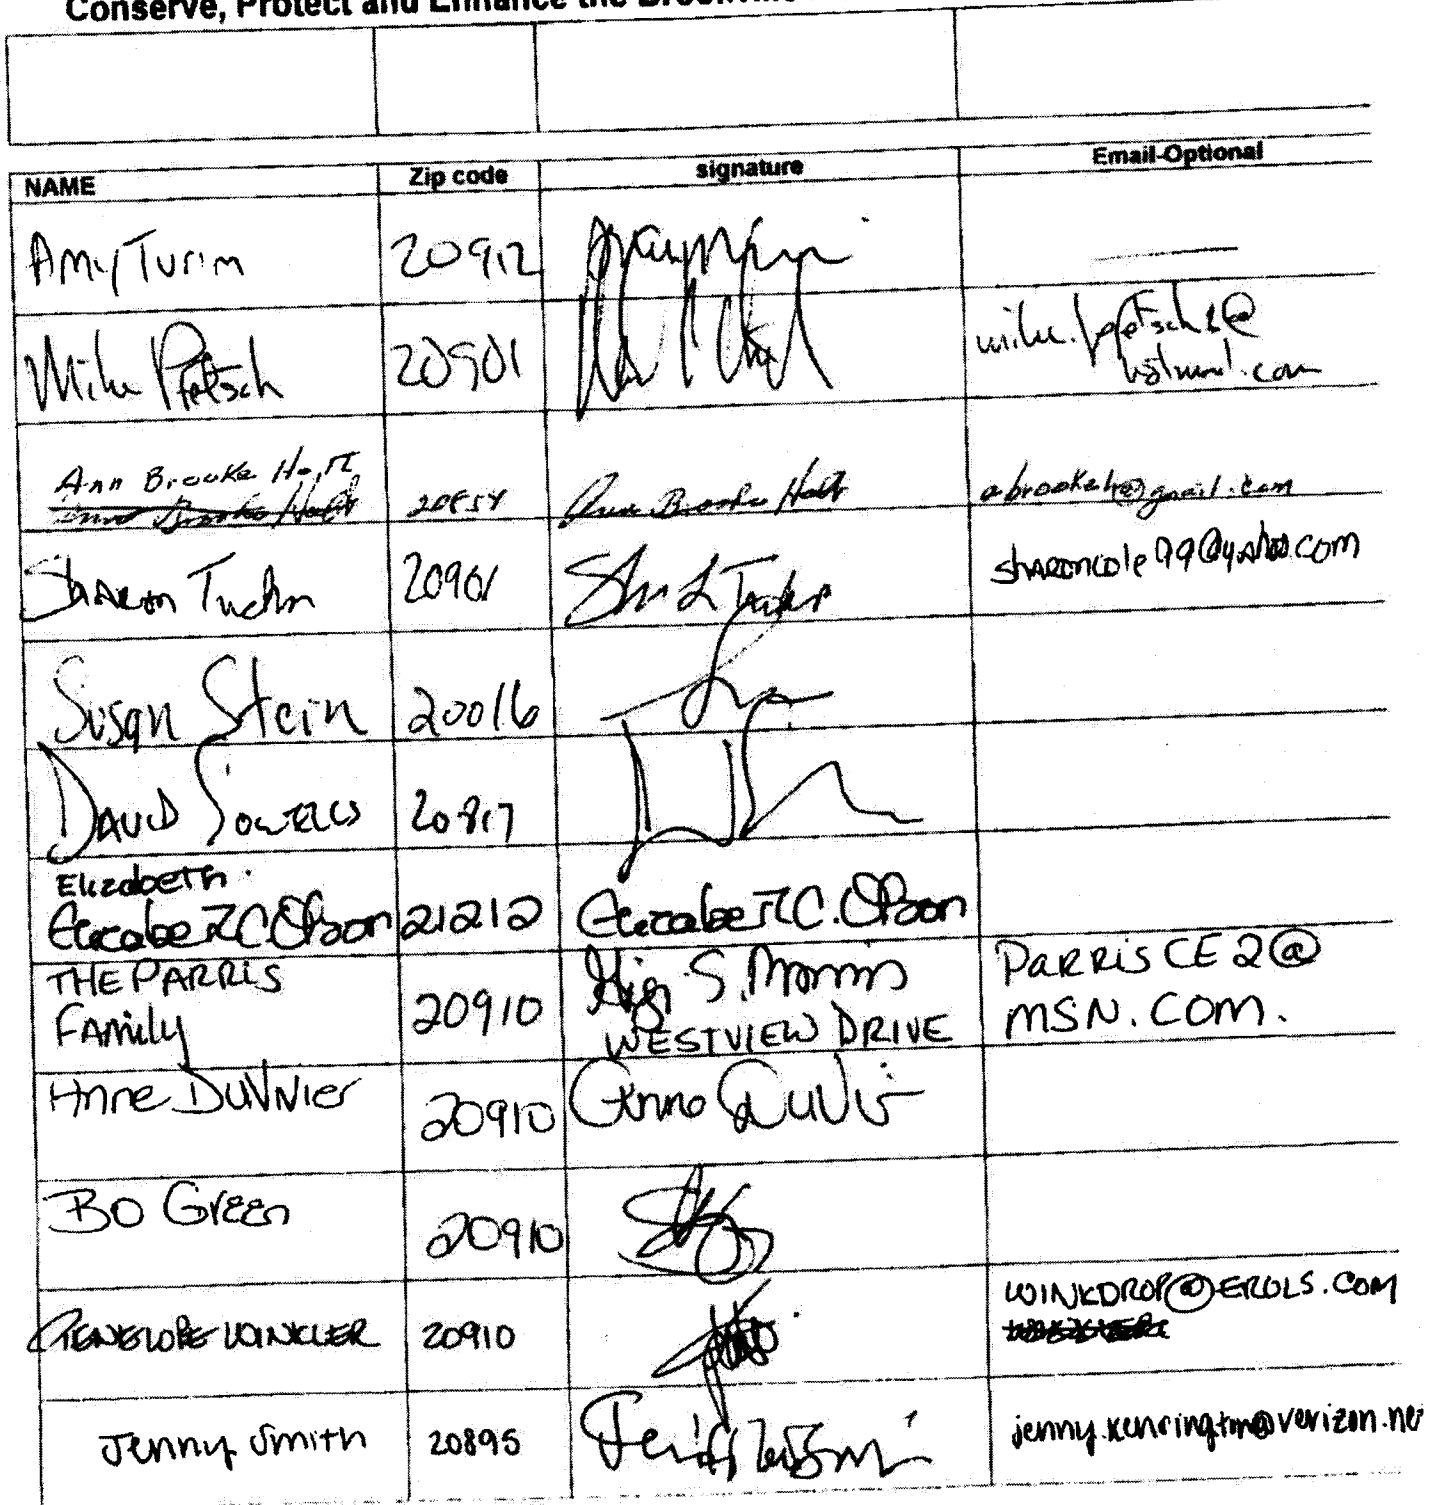 Conserve, Protect and Enhance the
NAME Zip code signature Email-Optional
Amy Turim 20912
Mike Pfetsch 20901 mike.pfetsch1@
hotmail.com
Ann Brooke Holt
Ann Brooke Holt 20854 Ann Brooke Holt abrookeh@gmail.com
Sharon Tuchn 20901 sharoncole99@yahoo.com
Susan Stein 20016
David Sowells 20817
Elizabeth
Elizabeth C. Olson 21212 Elizabeth C. Olson
THE PARRIS
Family 20910 S. Morris
WESTVIEW DRIVE PARRISCE2@
MSN.COM.
Anne DuVNier 20910 Anne
Bo Green 20910
PENELOPE WINKLER 20910 WINKDROP@EROLS.COM
Jenny Smith 20895 jenny.kenrington@verizon.net